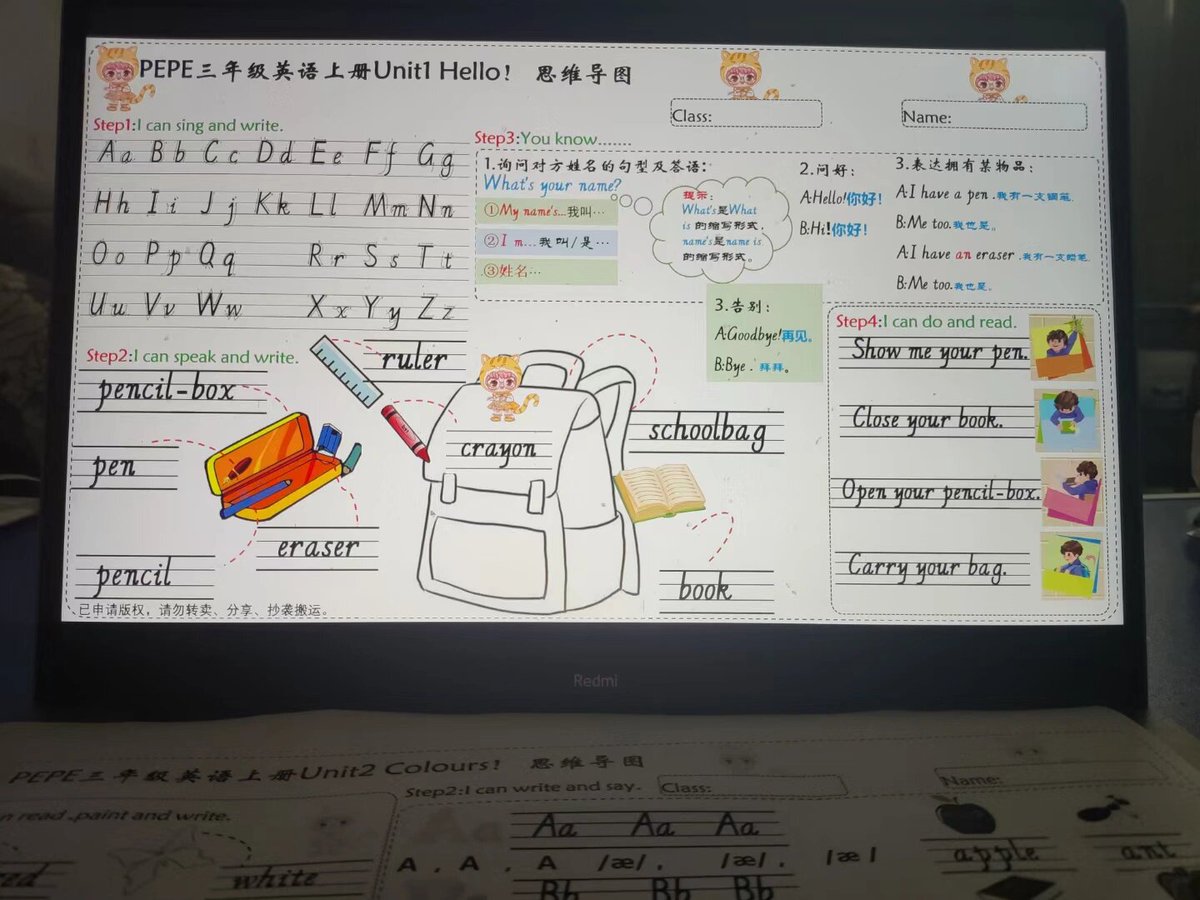 PEPE三年级英语上册Unit1 Hello! 思维导图
Class:
Name:
Step1:I can sing and write.
Aa Bb Cc Dd Ee Ff Gg
Hh Ii Jj Kk Ll Mm Nn
Oo Pp Qq Rr Ss Tt
Uu Vv Ww Xx Yy Zz
Step2:I can speak and write.
ruler
pencil-box
crayon
schoolbag
pen
eraser
pencil
book
已申请版权，请勿转卖、分享、抄袭搬运。
Step3:You know.......
1.询问对方姓名的句型及答语：
What's your name?
①My name's...我叫…
②I m...我叫/是…
③姓名…
提示：
What's是What
is 的缩写形式，
name's是name is
的缩写形式。
2.问好：
A:Hello!你好！
B:Hi!你好！
3.表达拥有某物品：
A:I have a pen.我有一支钢笔.
B:Me too.我也是。
A:I have an eraser .我有一支蜡笔.
B:Me too.我也是.
3.告别：
A:Goodbye!再见。
B:Bye . 拜拜。
Step4:I can do and read.
Show me your pen.
Close your book.
Open your pencil-box.
Carry your bag.
Redmi
PEPE三年级英语上册Unit2 Colours! 思维导图
Class:
Name:
n read ,paint and write.
red
white
Step2:I can write and say.
Aa Aa Aa
A , A , A /æ/ , /æ/ , /æ/
Bb Bb Bb
apple
ant